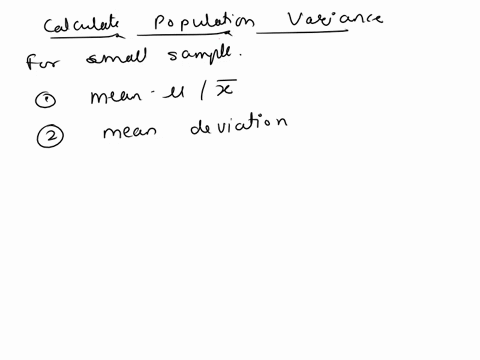 Calculate Population Variance
For small sample.
① mean - μ / x̄
② mean deviation